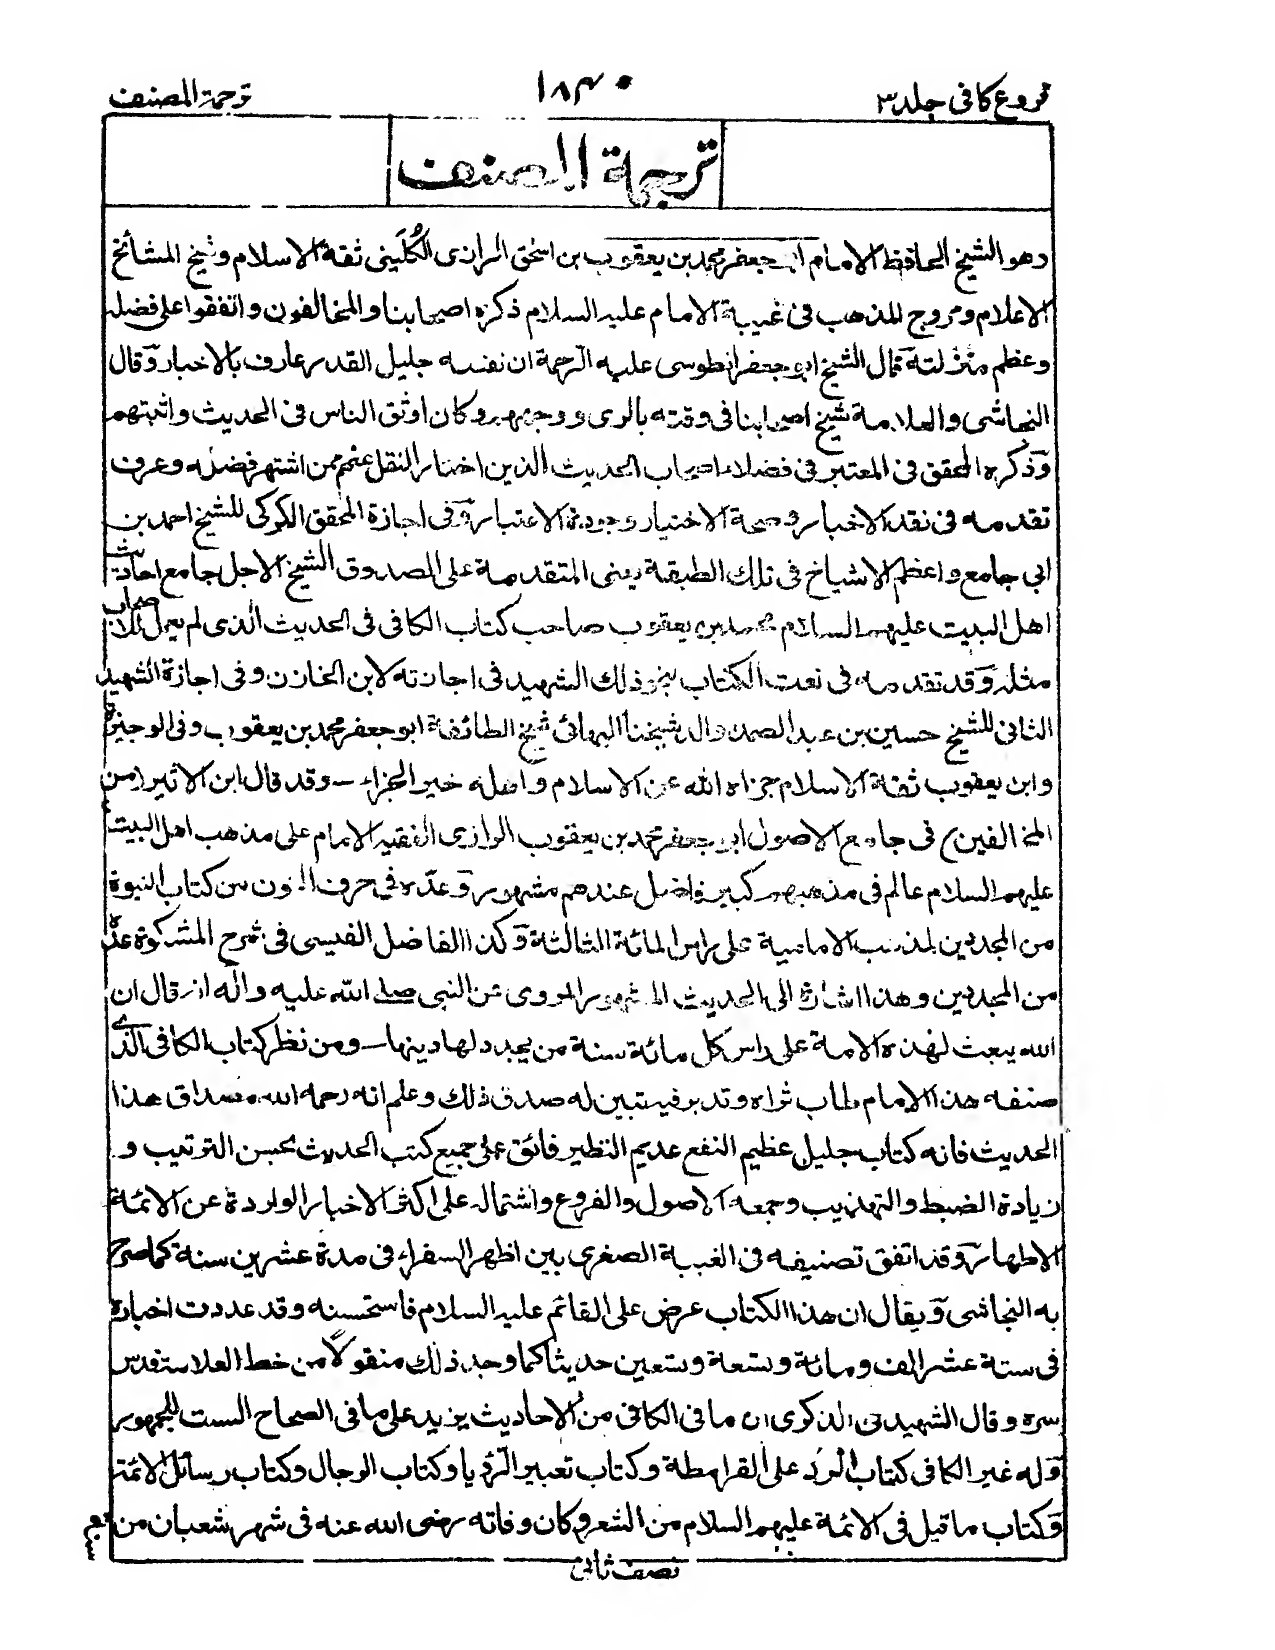 فروع كافى جلد٣
١٨٣٠
ترجمة المصنف
ترجمة المصنف
وهو الشيخ الحافظ الامام ابى جعفر محمد بن يعقوب بن اسحٰق الرازى الكُلَينى ثقة الاسلام وشيخ المشائخ
الاعلام ومروج المذهب فى غيبة الامام عليه السلام ذكره اصحابنا والمخالفون واتفقوا على فضله
وعظم منزلته قال الشيخ ابو جعفر الطوسى عليه الرحمة انه ثقة جليل القدر عارف بالاخبار وقال
النجاشى والعلامة شيخ اصحابنا فى وقته بالرى ووجههم وكان اوثق الناس فى الحديث واثبتهم
وذكره المحقق فى المعتبر فى فضلاء اصحاب الحديث الذين اختار النقل عنهم ممن اشتهر فضله وعرف
تقدمه فى نقد الاخبار وصحة الاختيار وجودة الاعتبار وفى اجازة المحقق الكركى للشيخ احمد بن
ابى جامع واعظم الاشياخ فى تلك الطبقة يعنى المتقدمة على الصدوق الشيخ الاجل جامع احاديث
اهل البيت عليهم السلام محمد بن يعقوب صاحب كتاب الكافى فى الحديث الذى لم يعمل للاصحاب
مثله وقد تقدمه فى نعت الكتاب بنحو ذلك الشهيد فى اجازته لابن الخازن وفى اجازة الشهيد
الثانى للشيخ حسين بن عبد الصمد والد شيخنا البهائى شيخ الطائفة ابو جعفر محمد بن يعقوب وفى الوجيزة
وابن يعقوب ثقة الاسلام جزاه الله عن الاسلام واهله خير الجزاء - وقد قال ابن الاثير (من
المخالفين) فى جامع الاصول ابو جعفر محمد بن يعقوب الرازى الفقيه الامام على مذهب اهل البيت
عليهم السلام عالم فى مذهبهم كبير فاضل عندهم مشهور وعدّه فى حرف النون من كتاب النبوة
من المجددين لمذهب الامامية على راس المائة الثالثة وكذا الفاضل الفيسى فى شرح المشكوة عدّه
من المجددين وهذا اشارة الى الحديث المشهور المروى عن النبى صلى الله عليه واله انه قال ان
الله يبعث لهذه الامة على راس كل مائة سنة من يجدد لها دينها - ومن نظر كتاب الكافى الذى
صنفه هذا الامام طاب ثراه وتدبر فيه تبين له صدق ذلك وعلم انه رحمه الله مصداق هذا
الحديث فانه كتاب جليل عظيم النفع عديم النظير فائق على جميع كتب الحديث بحسن الترتيب و
زيادة الضبط والتهذيب وجمعه الاصول والفروع واشتماله على اكثر الاخبار الواردة عن الائمة
الاطهار وقد اتفق تصنيفه فى الغيبة الصغرى بين اظهر السفراء فى مدة عشرين سنة كما صرح
به النجاشى ويقال ان هذا الكتاب عرض على القائم عليه السلام فاستحسنه وقد عددت اخباره
فى ستة عشر الف ومائة وتسعة وتسعين حديثا كما وجد ذلك منقولاً من خط العلامة قدس
سره وقال الشهيد فى الذكرى ان ما فى الكافى من الاحاديث يزيد على ما فى الصحاح الست للجمهور
وله غير الكافى كتاب الرد على القرامطة وكتاب تعبير الرؤيا وكتاب الرجال وكتاب رسائل الائمة
وكتاب ما قيل فى الائمة عليهم السلام من الشعر وكان وفاته رضى الله عنه فى شهر شعبان من
نصف ثانى